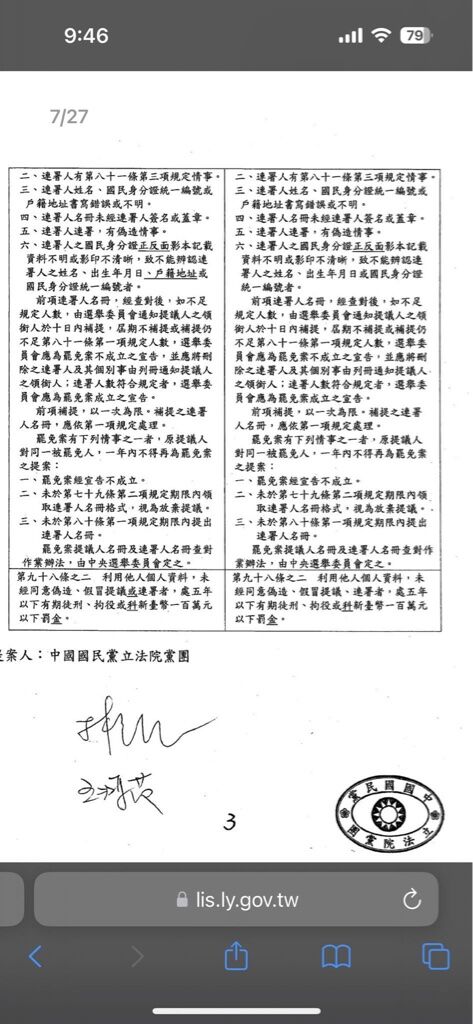 9:46
79
7/27
二、連署人有第八十一條第三項規定情事。
三、連署人姓名、國民身分證統一編號或
戶籍地址書寫錯誤或不明。
四、連署人名冊未經連署人簽名或蓋章。
五、連署人連署,有偽造情事。
六、連署人之國民身分證正反面影本記載
資料不明或影印不清晰,致不能辨認連
署人之姓名、出生年月日、戶籍地址或
國民身分證統一編號者。
前項連署人名冊,經查對後,如不足
規定人數,由選舉委員會通知提議人之領
銜人於十日內補提,屆期不補提或補提仍
不足第八十一條第一項規定人數,選舉委
員會應為罷免案不成立之宣告,並應將刪
除之連署人及其個別事由列冊通知提議人
之領銜人;連署人數符合規定者,選舉委
員會應為罷免案成立之宣告。
前項補提,以一次為限。補提之連署
人名冊,應依第一項規定處理。
罷免案有下列情事之一者,原提議人
對同一被罷免人,一年內不得再為罷免案
之提案:
一、罷免案經宣告不成立。
二、未於第七十九條第二項規定期限內領
取連署人名冊格式,視為放棄提議。
三、未於第八十條第一項規定期限內提出
連署人名冊。
罷免案提議人名冊及連署人名冊查對
作業辦法,由中央選舉委員會定之。
第九十八條之二 利用他人個人資料,未
經同意偽造、假冒提議或連署者,處五年
以下有期徒刑、拘役或科新臺幣一百萬元
以下罰金。
二、連署人有第八十一條第三項規定情事。
三、連署人姓名、國民身分證統一編號或
戶籍地址書寫錯誤或不明。
四、連署人名冊未經連署人簽名或蓋章。
五、連署人連署,有偽造情事。
六、連署人之國民身分證正反面影本記載
資料不明或影印不清晰,致不能辨認連
署人之姓名、出生年月日或國民身分證
統一編號者。
前項連署人名冊,經查對後,如不足
規定人數,由選舉委員會通知提議人之領
銜人於十日內補提,屆期不補提或補提仍
不足第八十一條第一項規定人數,選舉委
員會應為罷免案不成立之宣告,並應將刪
除之連署人及其個別事由列冊通知提議人
之領銜人;連署人數符合規定者,選舉委
員會應為罷免案成立之宣告。
前項補提,以一次為限。補提之連署
人名冊,應依第一項規定處理。
罷免案有下列情事之一者,原提議人
對同一被罷免人,一年內不得再為罷免案
之提案:
一、罷免案經宣告不成立。
二、未於第七十九條第二項規定期限內領
取連署人名冊格式,視為放棄提議。
三、未於第八十條第一項規定期限內提出
連署人名冊。
罷免案提議人名冊及連署人名冊查對作
業辦法,由中央選舉委員會定之。
第九十八條之二 利用他人個人資料,未
經同意偽造、假冒提議、連署者,處五年
以下有期徒刑、拘役或科新臺幣一百萬元
以下罰金。
案人:中國國民黨立法院黨團
3
中國國民黨
立法院黨團
lis.ly.gov.tw